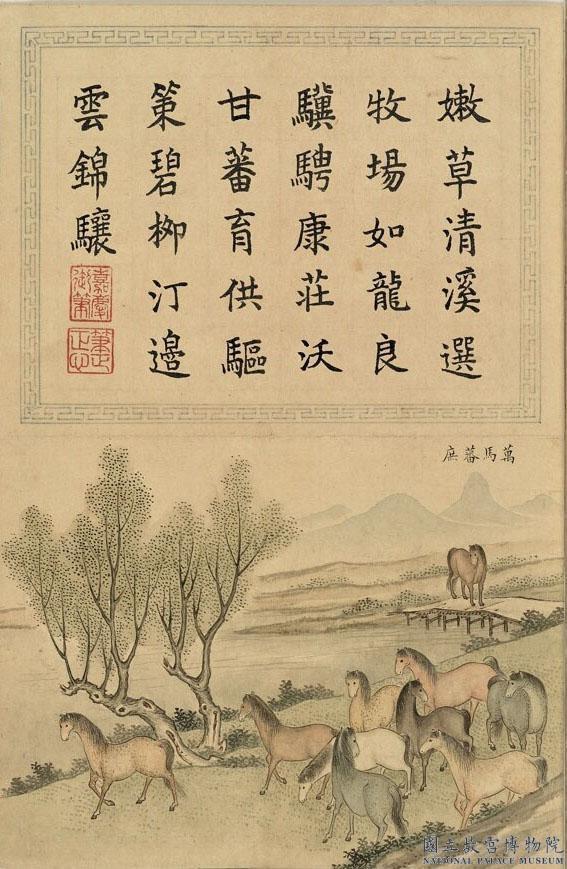 嫩草清溪選
牧場如龍良
驥騁康莊沃
甘蕃育供驅
策碧柳汀邊
雲錦驤
嘉慶
御筆
萬馬蕃庶
國立故宮博物院
NATIONAL PALACE MUSEUM